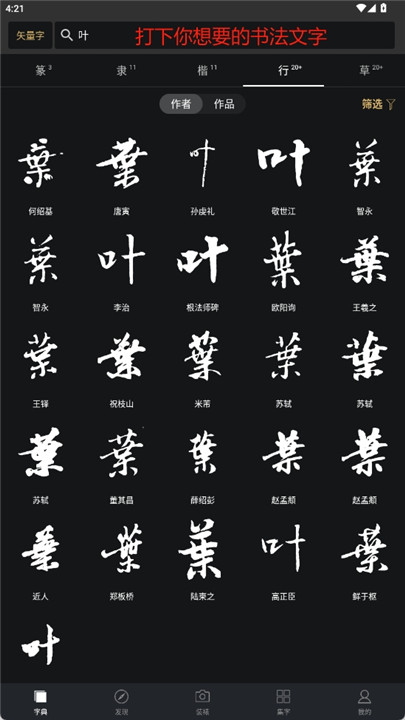 4:21
矢量字 叶 打下你想要的书法文字
篆 3 隶 11 楷 11 行 20+ 草 20+
作者 作品 筛选
葉 葉 叶 叶 葉
何绍基 唐寅 孙虔礼 敬世江 智永
葉 叶 叶 葉 葉
智永 李治 根法师碑 欧阳询 王羲之
葉 葉 葉 葉 葉
王铎 祝枝山 米芾 苏轼 苏轼
葉 葉 葉 葉 葉
苏轼 董其昌 薛绍彭 赵孟頫 赵孟頫
葉 葉 葉 叶 葉
近人 郑板桥 陆柬之 高正臣 鲜于枢
叶
字典 发现 集字 我的